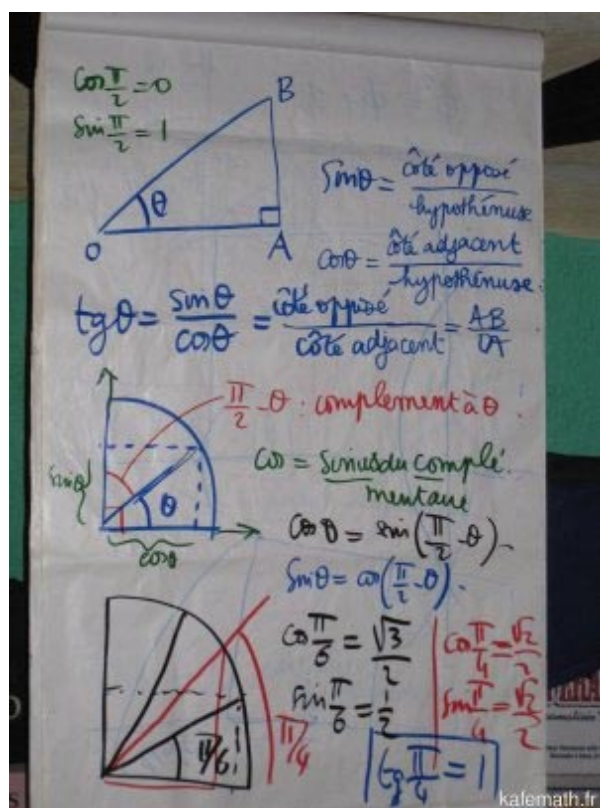 cos π/2 = 0
sin π/2 = 1
B
θ
O
A
sinθ = côté opposé / hypothénuse
cosθ = côté adjacent / hypothénuse.
tgθ = sinθ / cosθ = côté opposé / côté adjacent = AB / OA
π/2 - θ : complement à θ.
sinθ
θ
cosθ
cos = sinus du complé.
mentaire
cosθ = sin(π/2 - θ).
sinθ = cos(π/2 - θ).
cos π/6 = √3/2
sin π/6 = 1/2
cos π/4 = √2/2
sin π/4 = √2/2
π/6
π/4
tg π/4 = 1
kafemath.fr